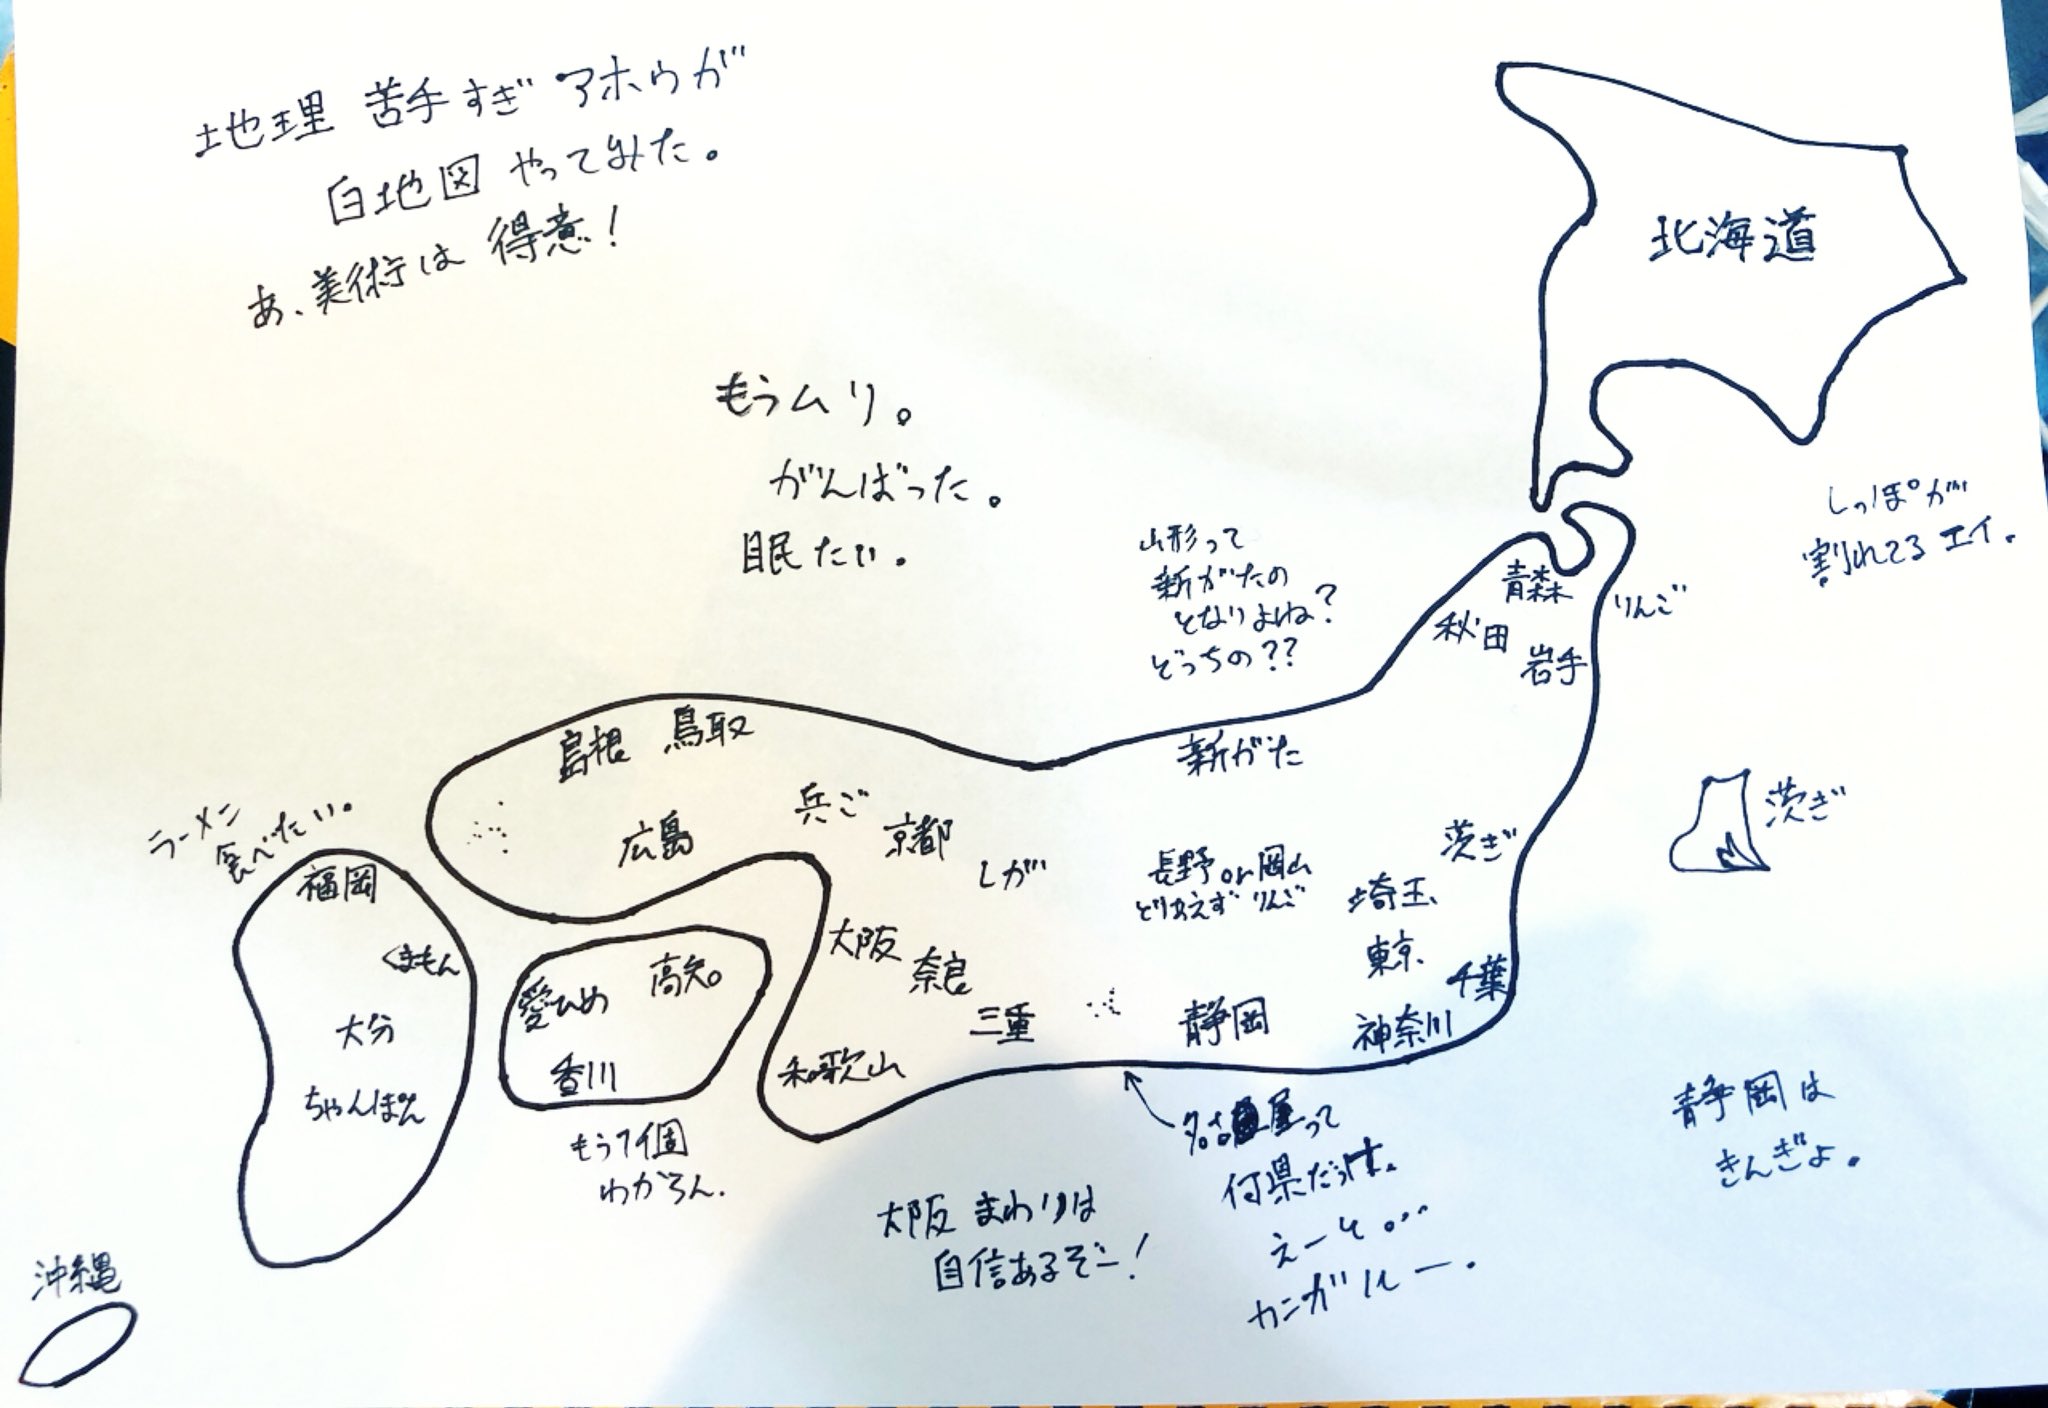 地理 苦手すぎ アホウが
白地図 やってみた。
あ、美術は 得意!
もうムリ。
がんばった。
眠たい。
北海道
しっぽが
割れてる エイ。
山形って
新がたの
となりよね?
どっちの??
青森
りんご
秋田
岩手
島根 鳥取
新がた
広島
兵ご
京都
しが
長野 or 岡山
とりあえず りんご
茨ぎ
埼玉
東京
千葉
神奈川
静岡
茨ぎ
大阪
奈良
三重
和歌山
ラーメン
食べたい。
福岡
くまもん
大分
ちゃんぽん
愛ひめ
高知
香川
もう1個
わからん.
沖縄
大阪 まわりは
自信あるぞー!
名古屋って
何県だっけ。
えーと。
カンガルー.
静岡は
きんぎょ。